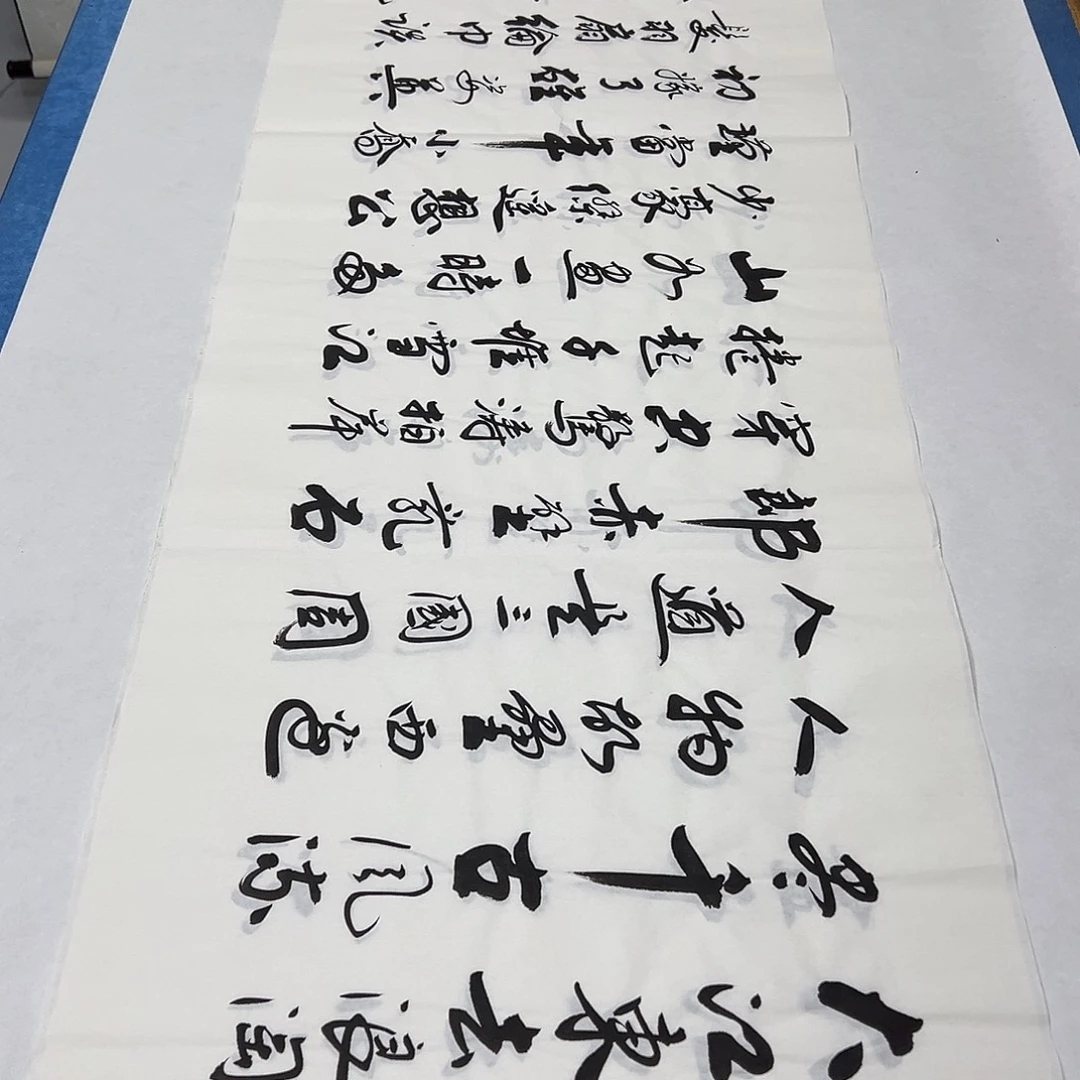 大江東去浪淘
尽千古風流
人物故壘西邊
人道是三國周
郎赤壁乱石
穿空驚濤拍岸
捲起千堆雪江
山如畫一時多
少豪傑遥想公
瑾當年小喬
初嫁了雄姿英
發羽扇綸巾談